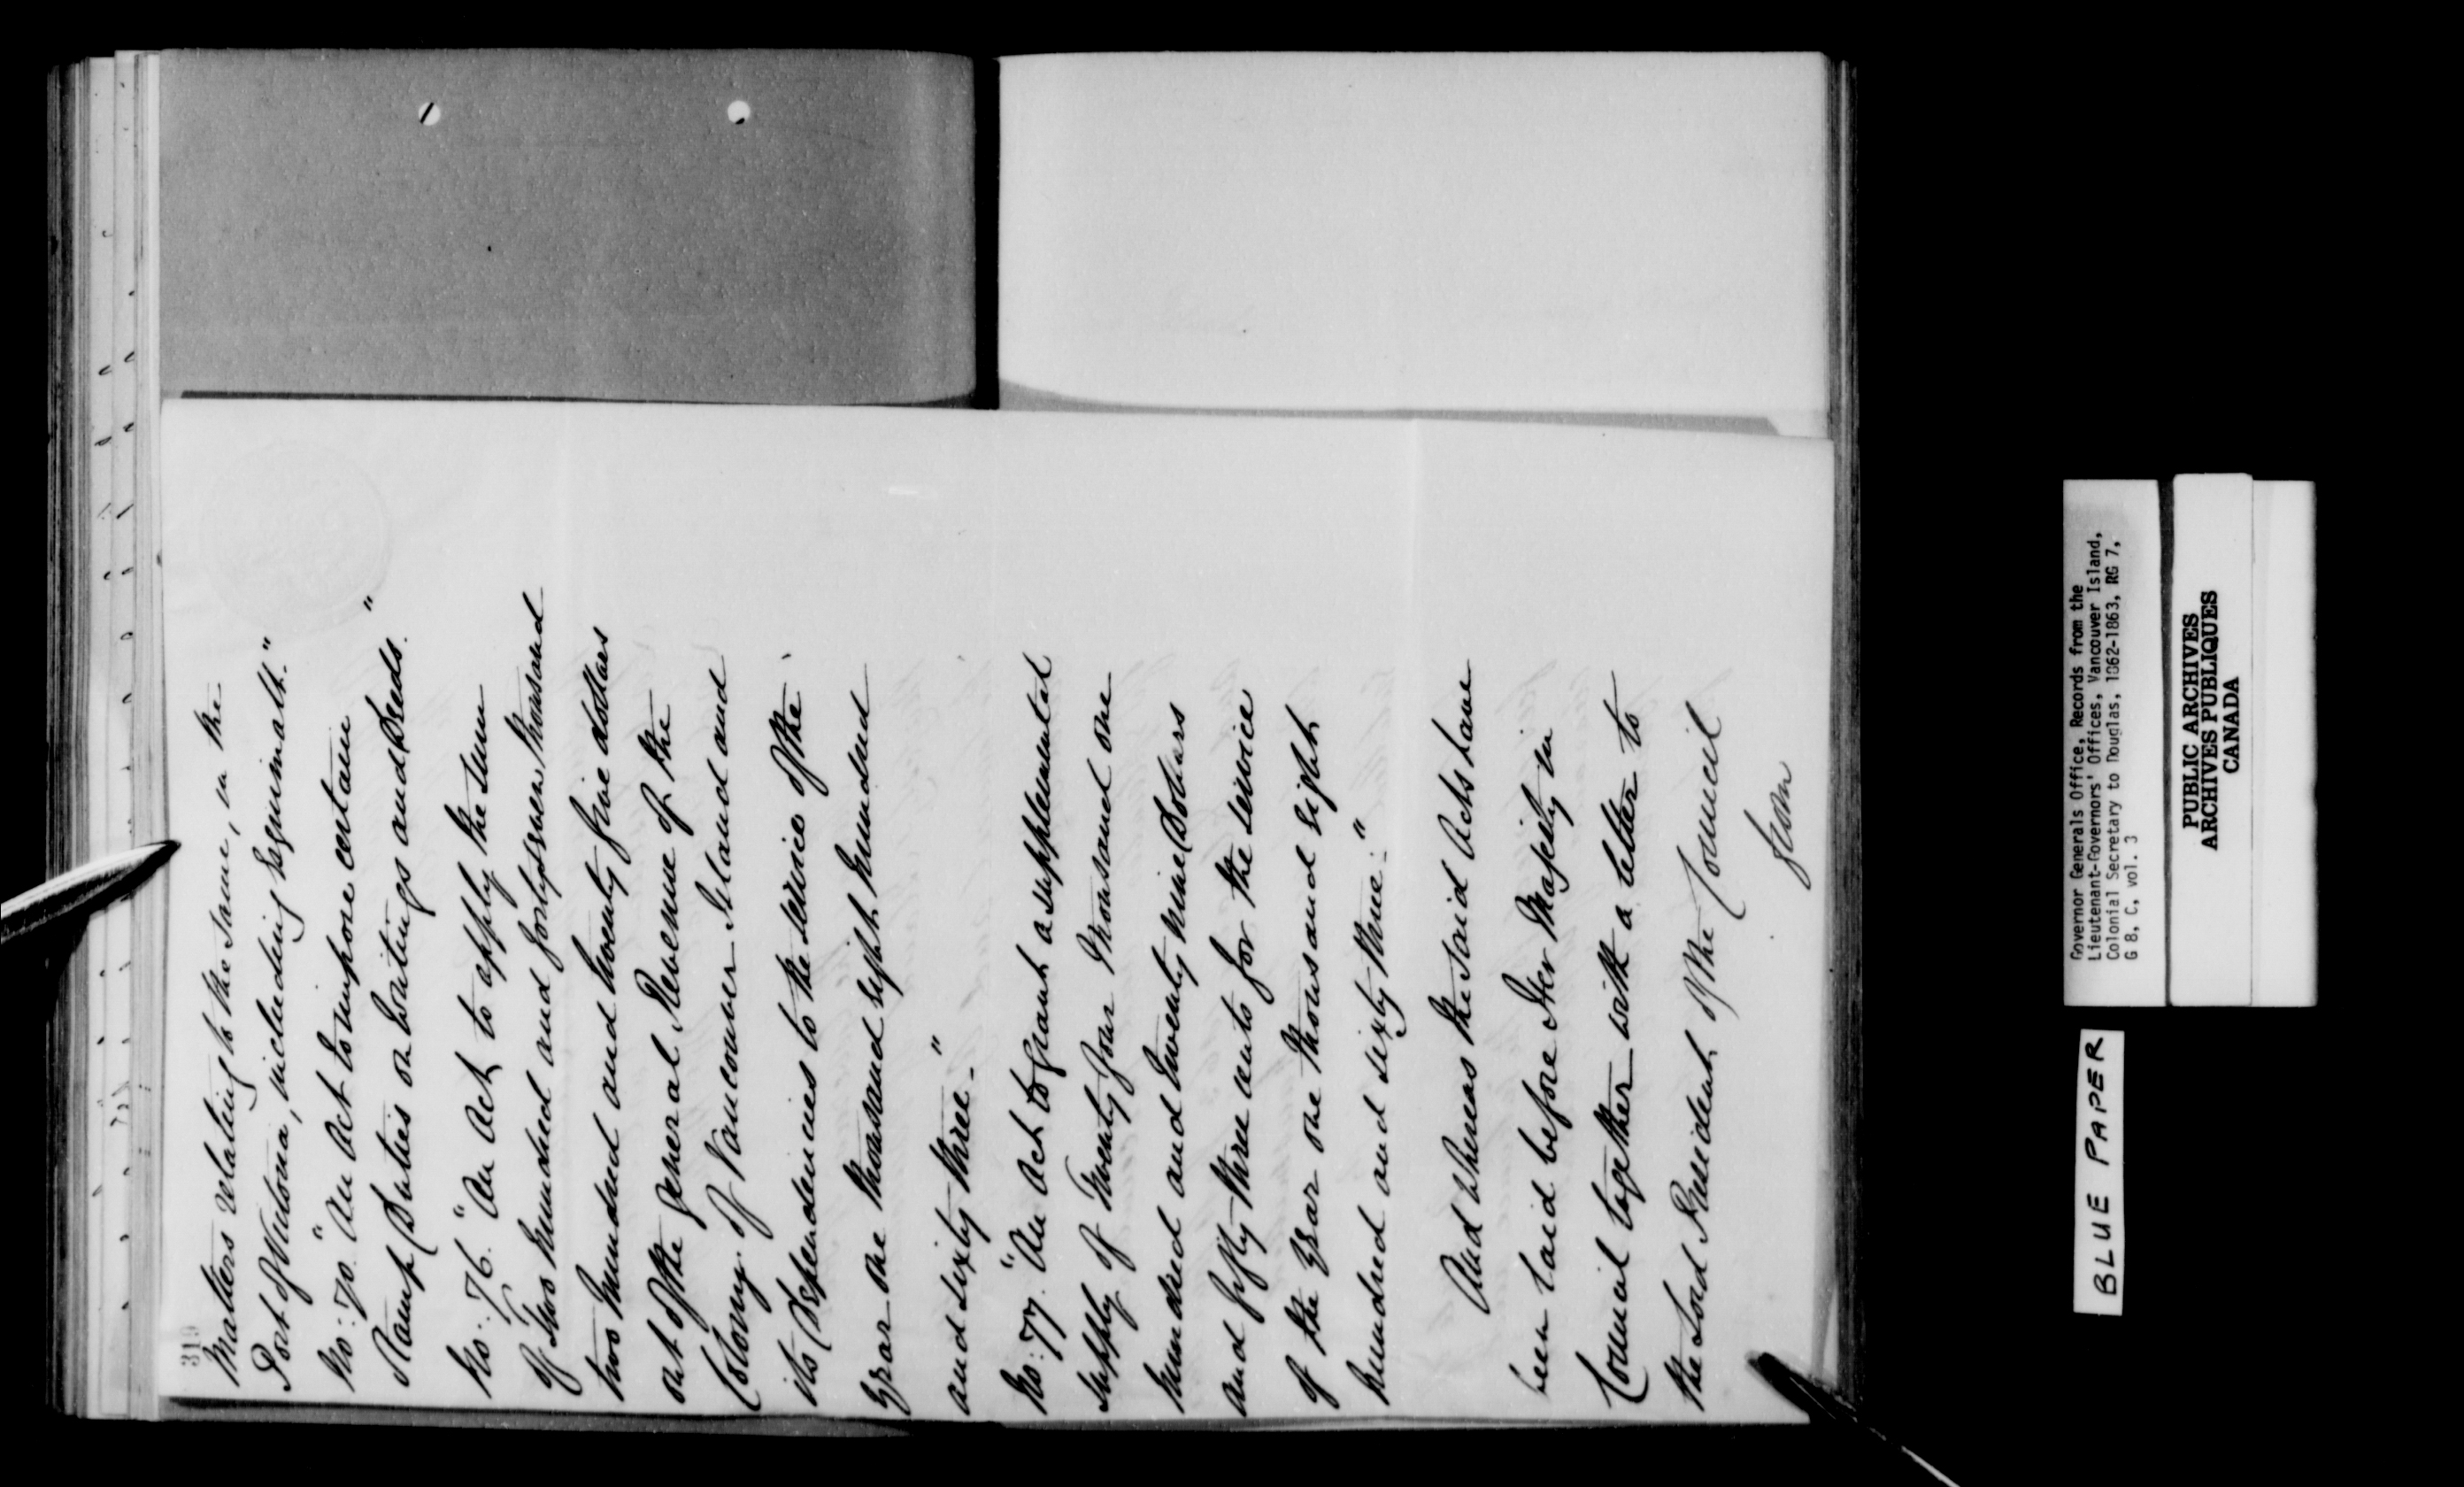 319
Matters relating to the same, in the
Port of Victoria, including Esquimalt."
No: 70. "An Act to impose certain
Stamp Duties on Writings and Deeds."
No: 76. "An Act to apply the sum
of Two hundred and forty seven thousand
two hundred and twenty five dollars
out of the general Revenue of the
Colony of Vancouver Island and
its Dependencies to the service of the
Year one thousand eight hundred
and sixty three."
No: 77. "An Act to grant a supplemental
supply of Twenty four Thousand one
hundred and Twenty nine Dollars
and fifty three cents for the service
of the Year one thousand eight
hundred and sixty three."
And whereas the said Acts have
been laid before Her Majesty in
Council together with a letter to
the Lord President of the Council
from
Governor Generals Office, Records from the
Lieutenant-Governors' Offices, Vancouver Island,
Colonial Secretary to Douglas, 1862-1863, RG 7,
G 8, C, vol. 3
PUBLIC ARCHIVES
ARCHIVES PUBLIQUES
CANADA
BLUE PAPER